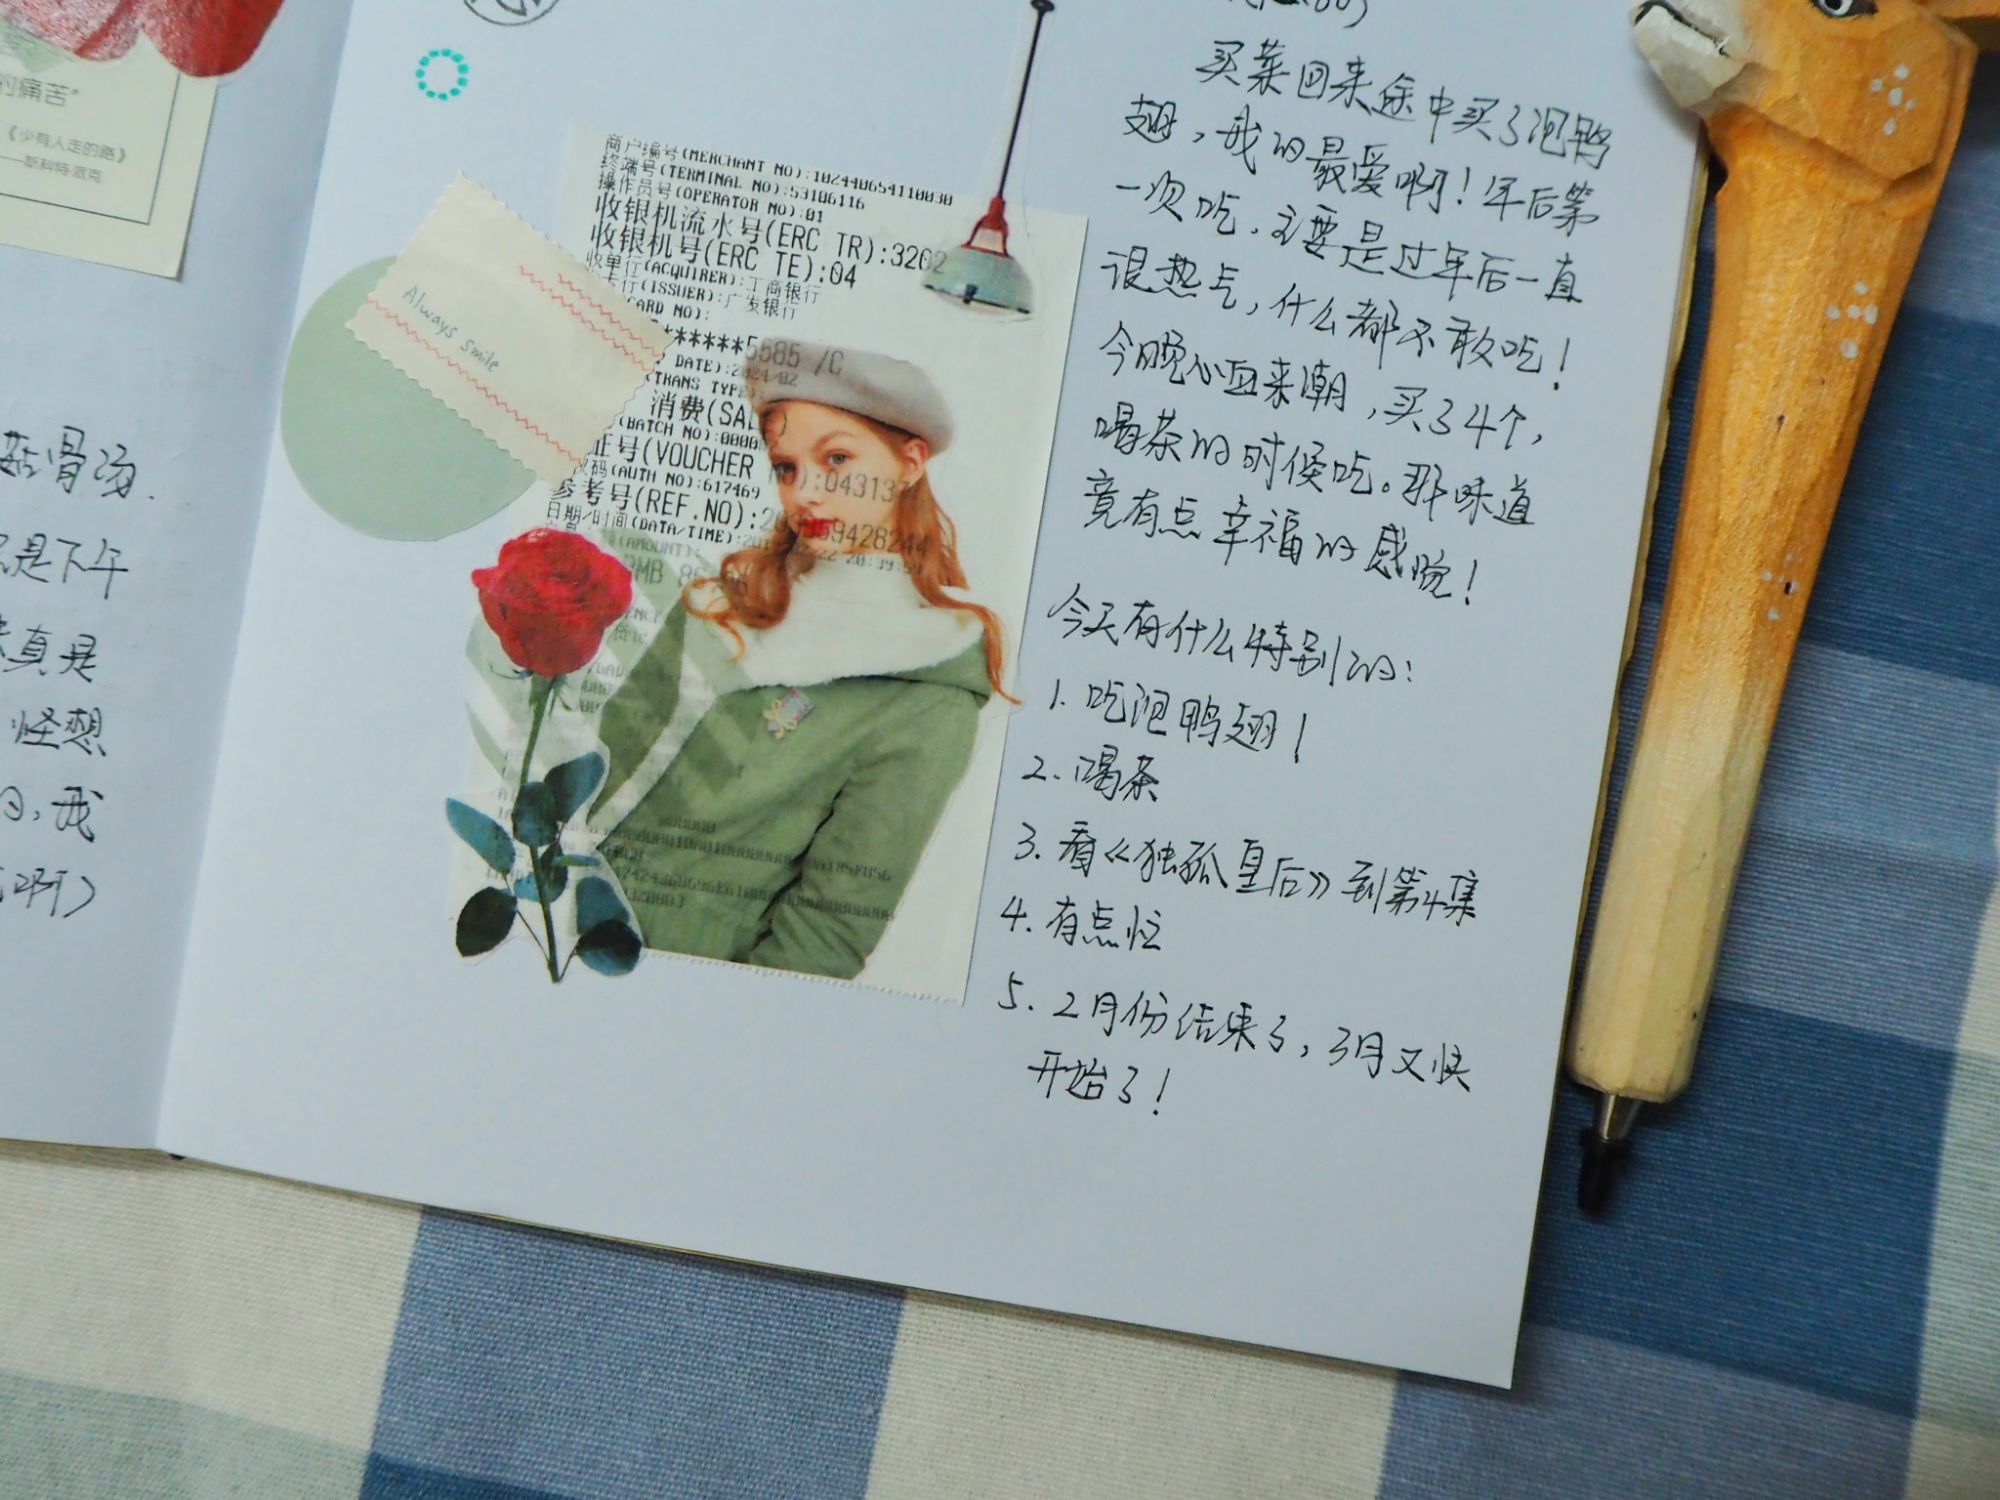 的痛苦”
《少有人走的路》
——斯科特·派克
菇骨汤.
是下午
真是
怪想
我
商户编号(MERCHANT NO):102440654110030
终端号(TERMINAL NO):53106116
操作员号(OPERATOR NO):01
收银机流水号(ERC TR):3202
收银机号(ERC TE):04
收单行(ACQUIRER):工商银行
行(ISSUER):广发银行
ARD NO):
*****5585 /C
DATE):2024/02
(TRANS TYPE
消费(SAL
(BATCH NO):0000
证号(VOUCHER NO):043137
码(AUTH NO):617469
参考号(REF.NO):
日期/时间(DATA/TIME):
(AMOUNT):
Always smile
买菜回来途中买了泡鸭
翅,我的最爱啊!年后第
一次吃.主要是过年后一直
很热气,什么都不敢吃!
今晚心血来潮,买了4个,
喝茶的时候吃。那味道
竟有点幸福的感觉!
今天有什么特别的:
1.吃泡鸭翅!
2.喝茶
3.看《独孤皇后》到第4集
4.有点忙
5.2月份结束了,3月又快
开始了!